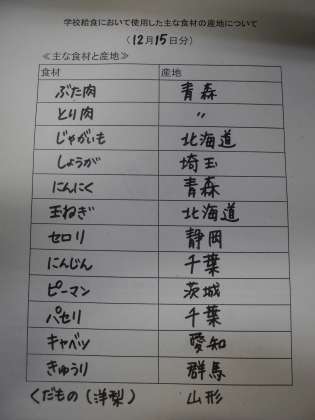 学校給食において使用した主な食材の産地について
（12月15日分）
≪主な食材と産地≫
食材 産地
ぶた肉 青森
とり肉 〃
じゃがいも 北海道
しょうが 埼玉
にんにく 青森
玉ねぎ 北海道
セロリ 静岡
にんじん 千葉
ピーマン 茨城
パセリ 千葉
キャベツ 愛知
きゅうり 群馬
くだもの（洋梨） 山形